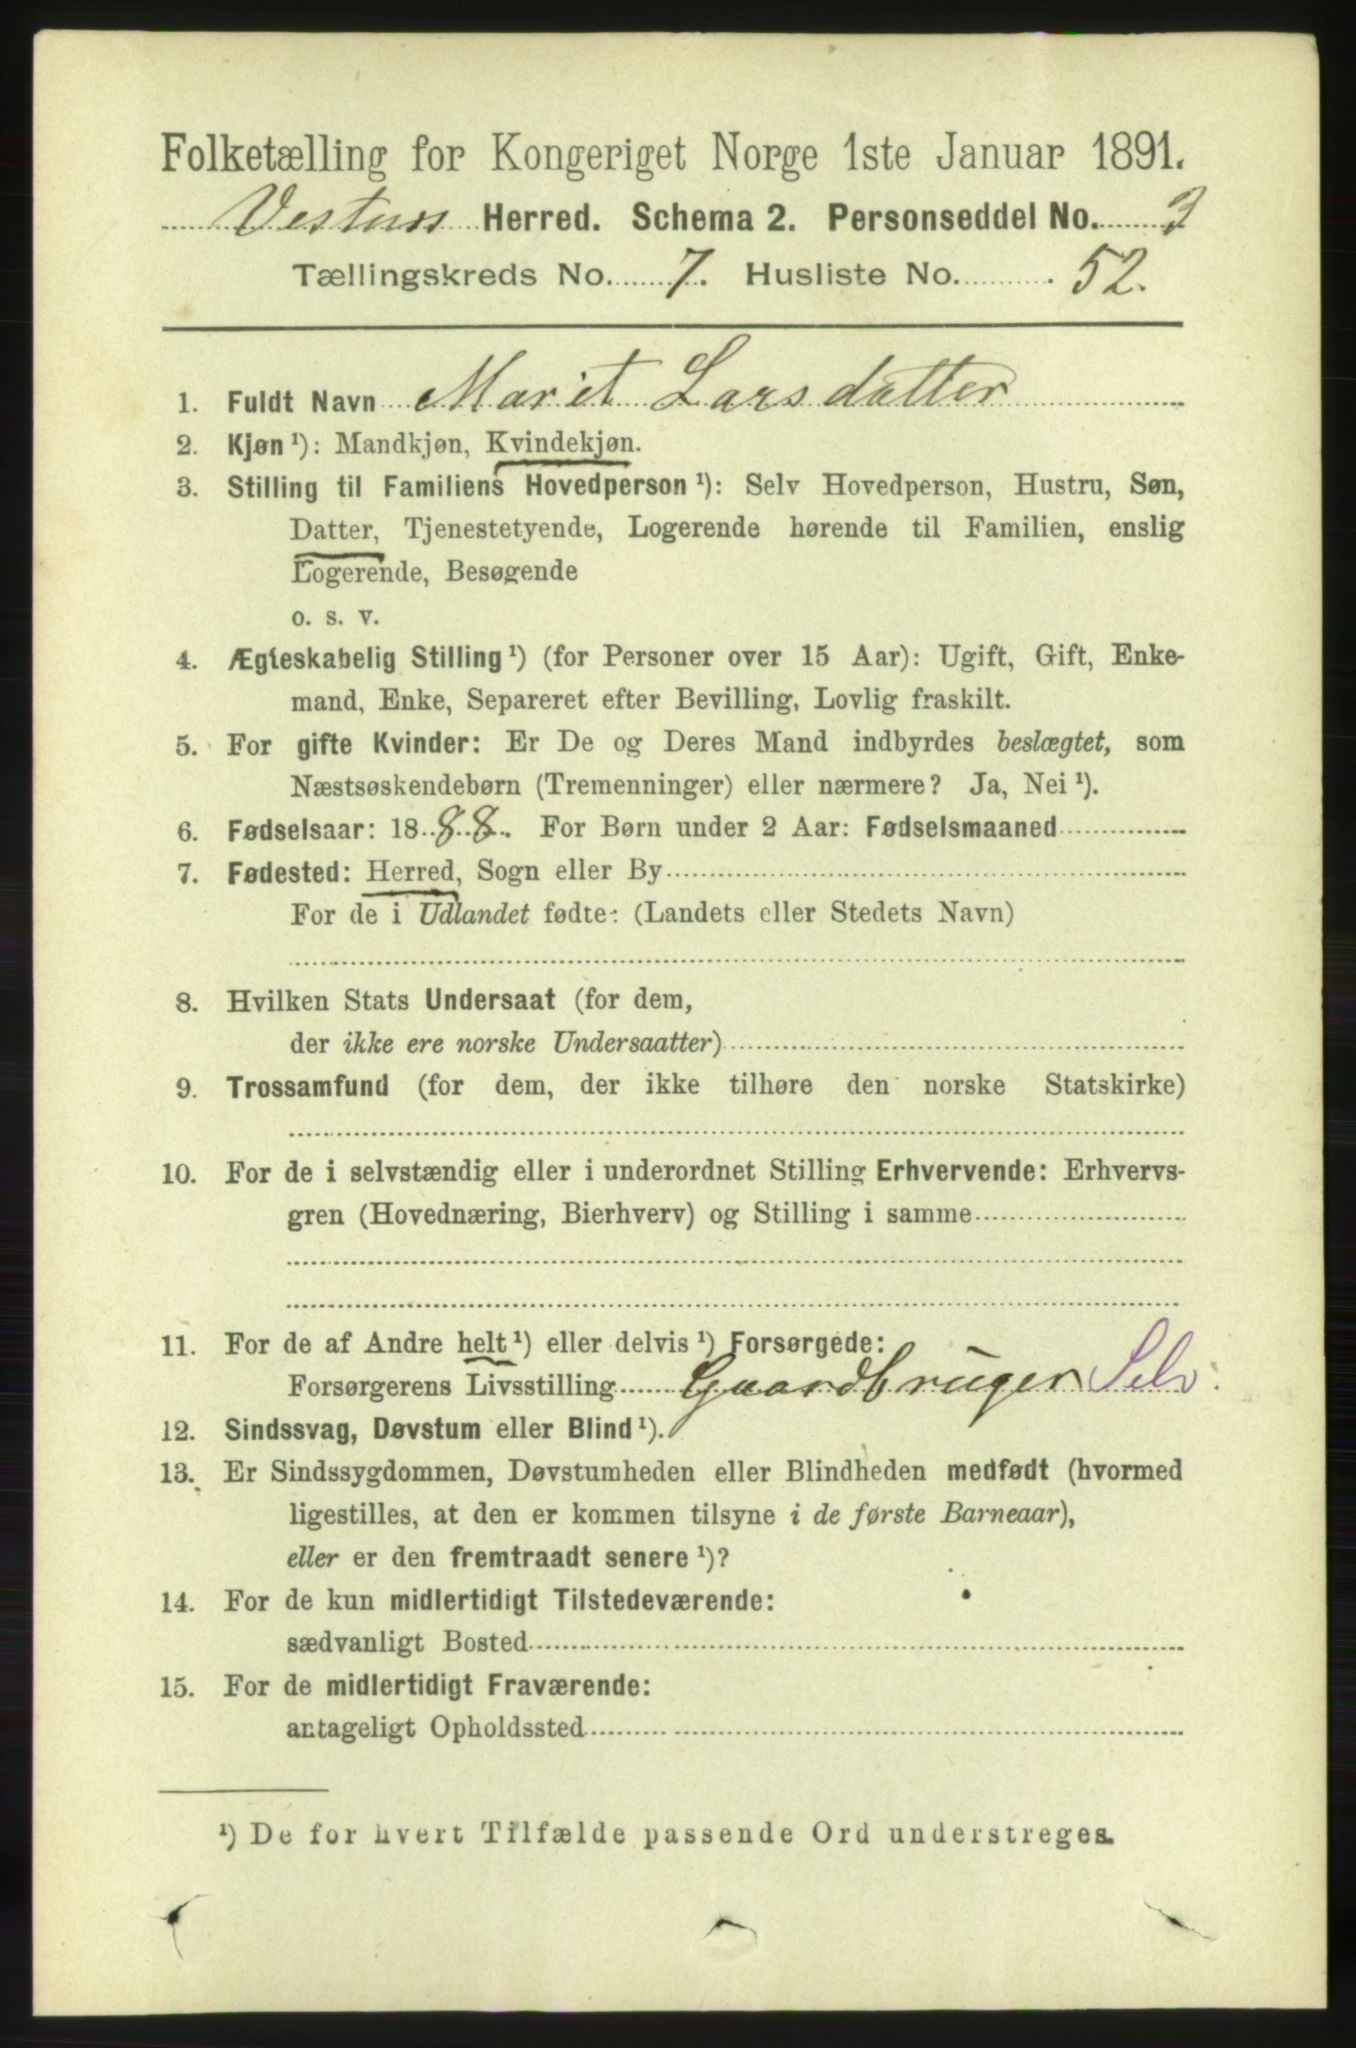 Folketælling for Kongeriget Norge 1ste Januar 1891.
Vestnes Herred. Schema 2. Personseddel No. 3
Tællingskreds No. 7. Husliste No. 52.
1. Fuldt Navn Marit Larsdatter
2. Kjøn ¹): Mandkjøn, Kvindekjøn.
3. Stilling til Familiens Hovedperson ¹): Selv Hovedperson, Hustru, Søn,
Datter, Tjenestetyende, Logerende hørende til Familien, enslig
Logerende, Besøgende
o. s. v.
4. Ægteskabelig Stilling ¹) (for Personer over 15 Aar): Ugift, Gift, Enke-
mand, Enke, Separeret efter Bevilling, Lovlig fraskilt.
5. For gifte Kvinder: Er De og Deres Mand indbyrdes beslægtet, som
Næstsøskendebørn (Tremenninger) eller nærmere? Ja, Nei ¹).
6. Fødselsaar: 1888. For Børn under 2 Aar: Fødselsmaaned
7. Fødested: Herred, Sogn eller By
For de i Udlandet fødte: (Landets eller Stedets Navn)
8. Hvilken Stats Undersaat (for dem,
der ikke ere norske Undersaatter)
9. Trossamfund (for dem, der ikke tilhøre den norske Statskirke)
10. For de i selvstændig eller i underordnet Stilling Erhvervende: Erhvervs-
gren (Hovednæring, Bierhverv) og Stilling i samme
11. For de af Andre helt ¹) eller delvis ¹) Forsørgede:
Forsørgerens Livsstilling Gaardbruger Selv.
12. Sindssvag, Døvstum eller Blind ¹).
13. Er Sindssygdommen, Døvstumheden eller Blindheden medfødt (hvormed
ligestilles, at den er kommen tilsyne i de første Barneaar),
eller er den fremtraadt senere ¹)?
14. For de kun midlertidigt Tilstedeværende:
sædvanligt Bosted
15. For de midlertidigt Fraværende:
antageligt Opholdssted
¹) De for hvert Tilfælde passende Ord understreges.